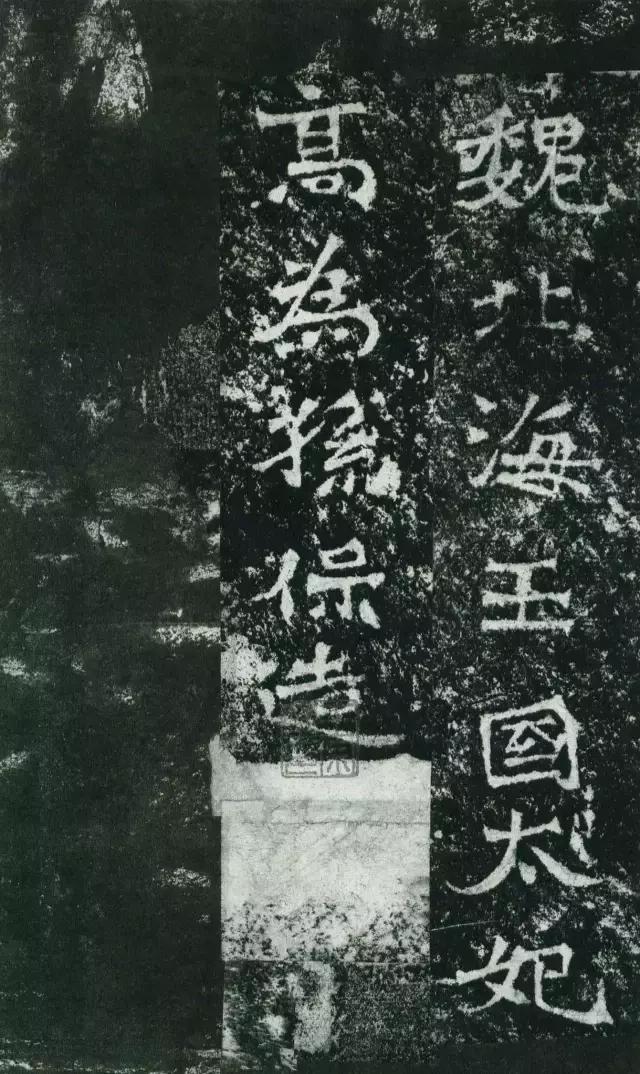 魏北海王國太妃
高為孫保造